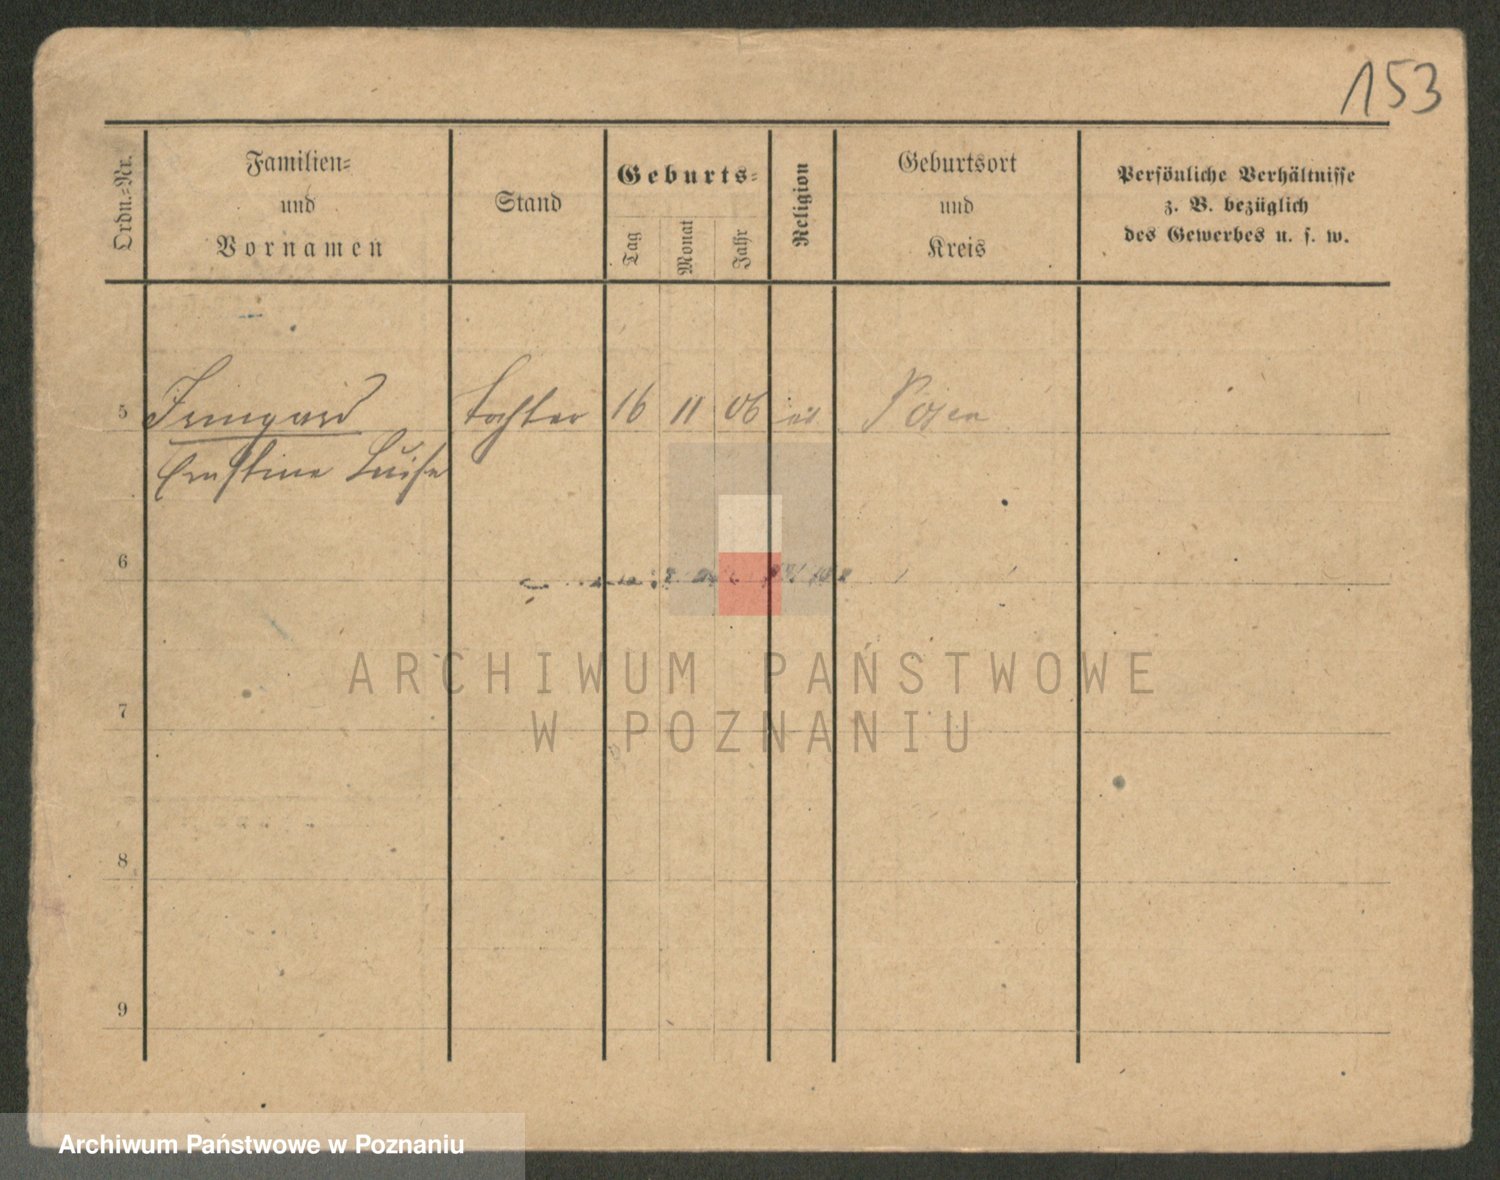 153
Ordn.=Nr.
Familien=
und
Vornamen
Stand
Geburts=
Tag
Monat
Jahr
Religion
Geburtsort
und
Kreis
Persönliche Verhältnisse
z. B. bezüglich
des Gewerbes u. s. w.
5 Irmgard Tochter 16 11 06 Posen
Ernstine Luise
6
ARCHIWUM PAŃSTWOWE
7
W POZNANIU
8
9
Archiwum Państwowe w Poznaniu